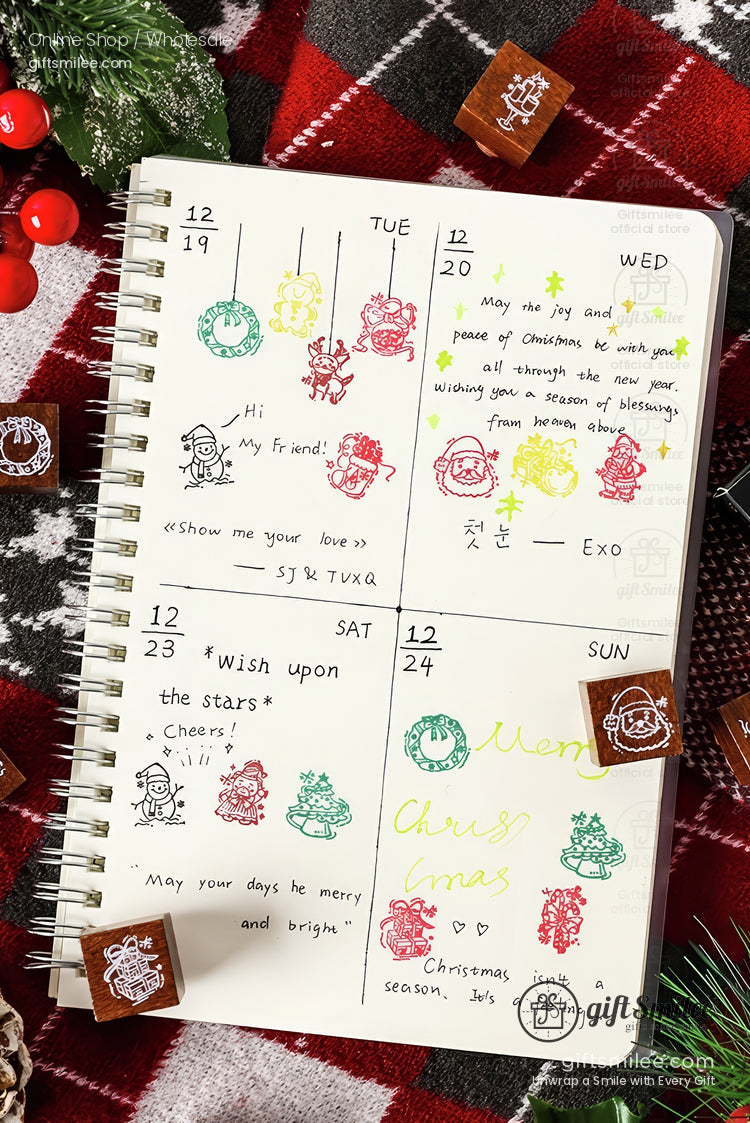 Online Shop / Wholesale
giftsmilee.com
12
19
TUE
Hi
My Friend!
«Show me your love»
— SJ & TVXQ
12
20
WED
May the joy and
peace of Christmas be with you
all through the new year.
Wishing you a season of blessings
from heaven above
첫 눈 — EXO
12
23
SAT
*Wish upon
the stars*
Cheers!
"May your days he merry
and bright"
12
24
SUN
Merry
Chris
tmas
Christmas isn't a
season. It's a
Giftsmilee
official store
gift Smilee
giftsmilee.com
Unwrap a Smile with Every Gift